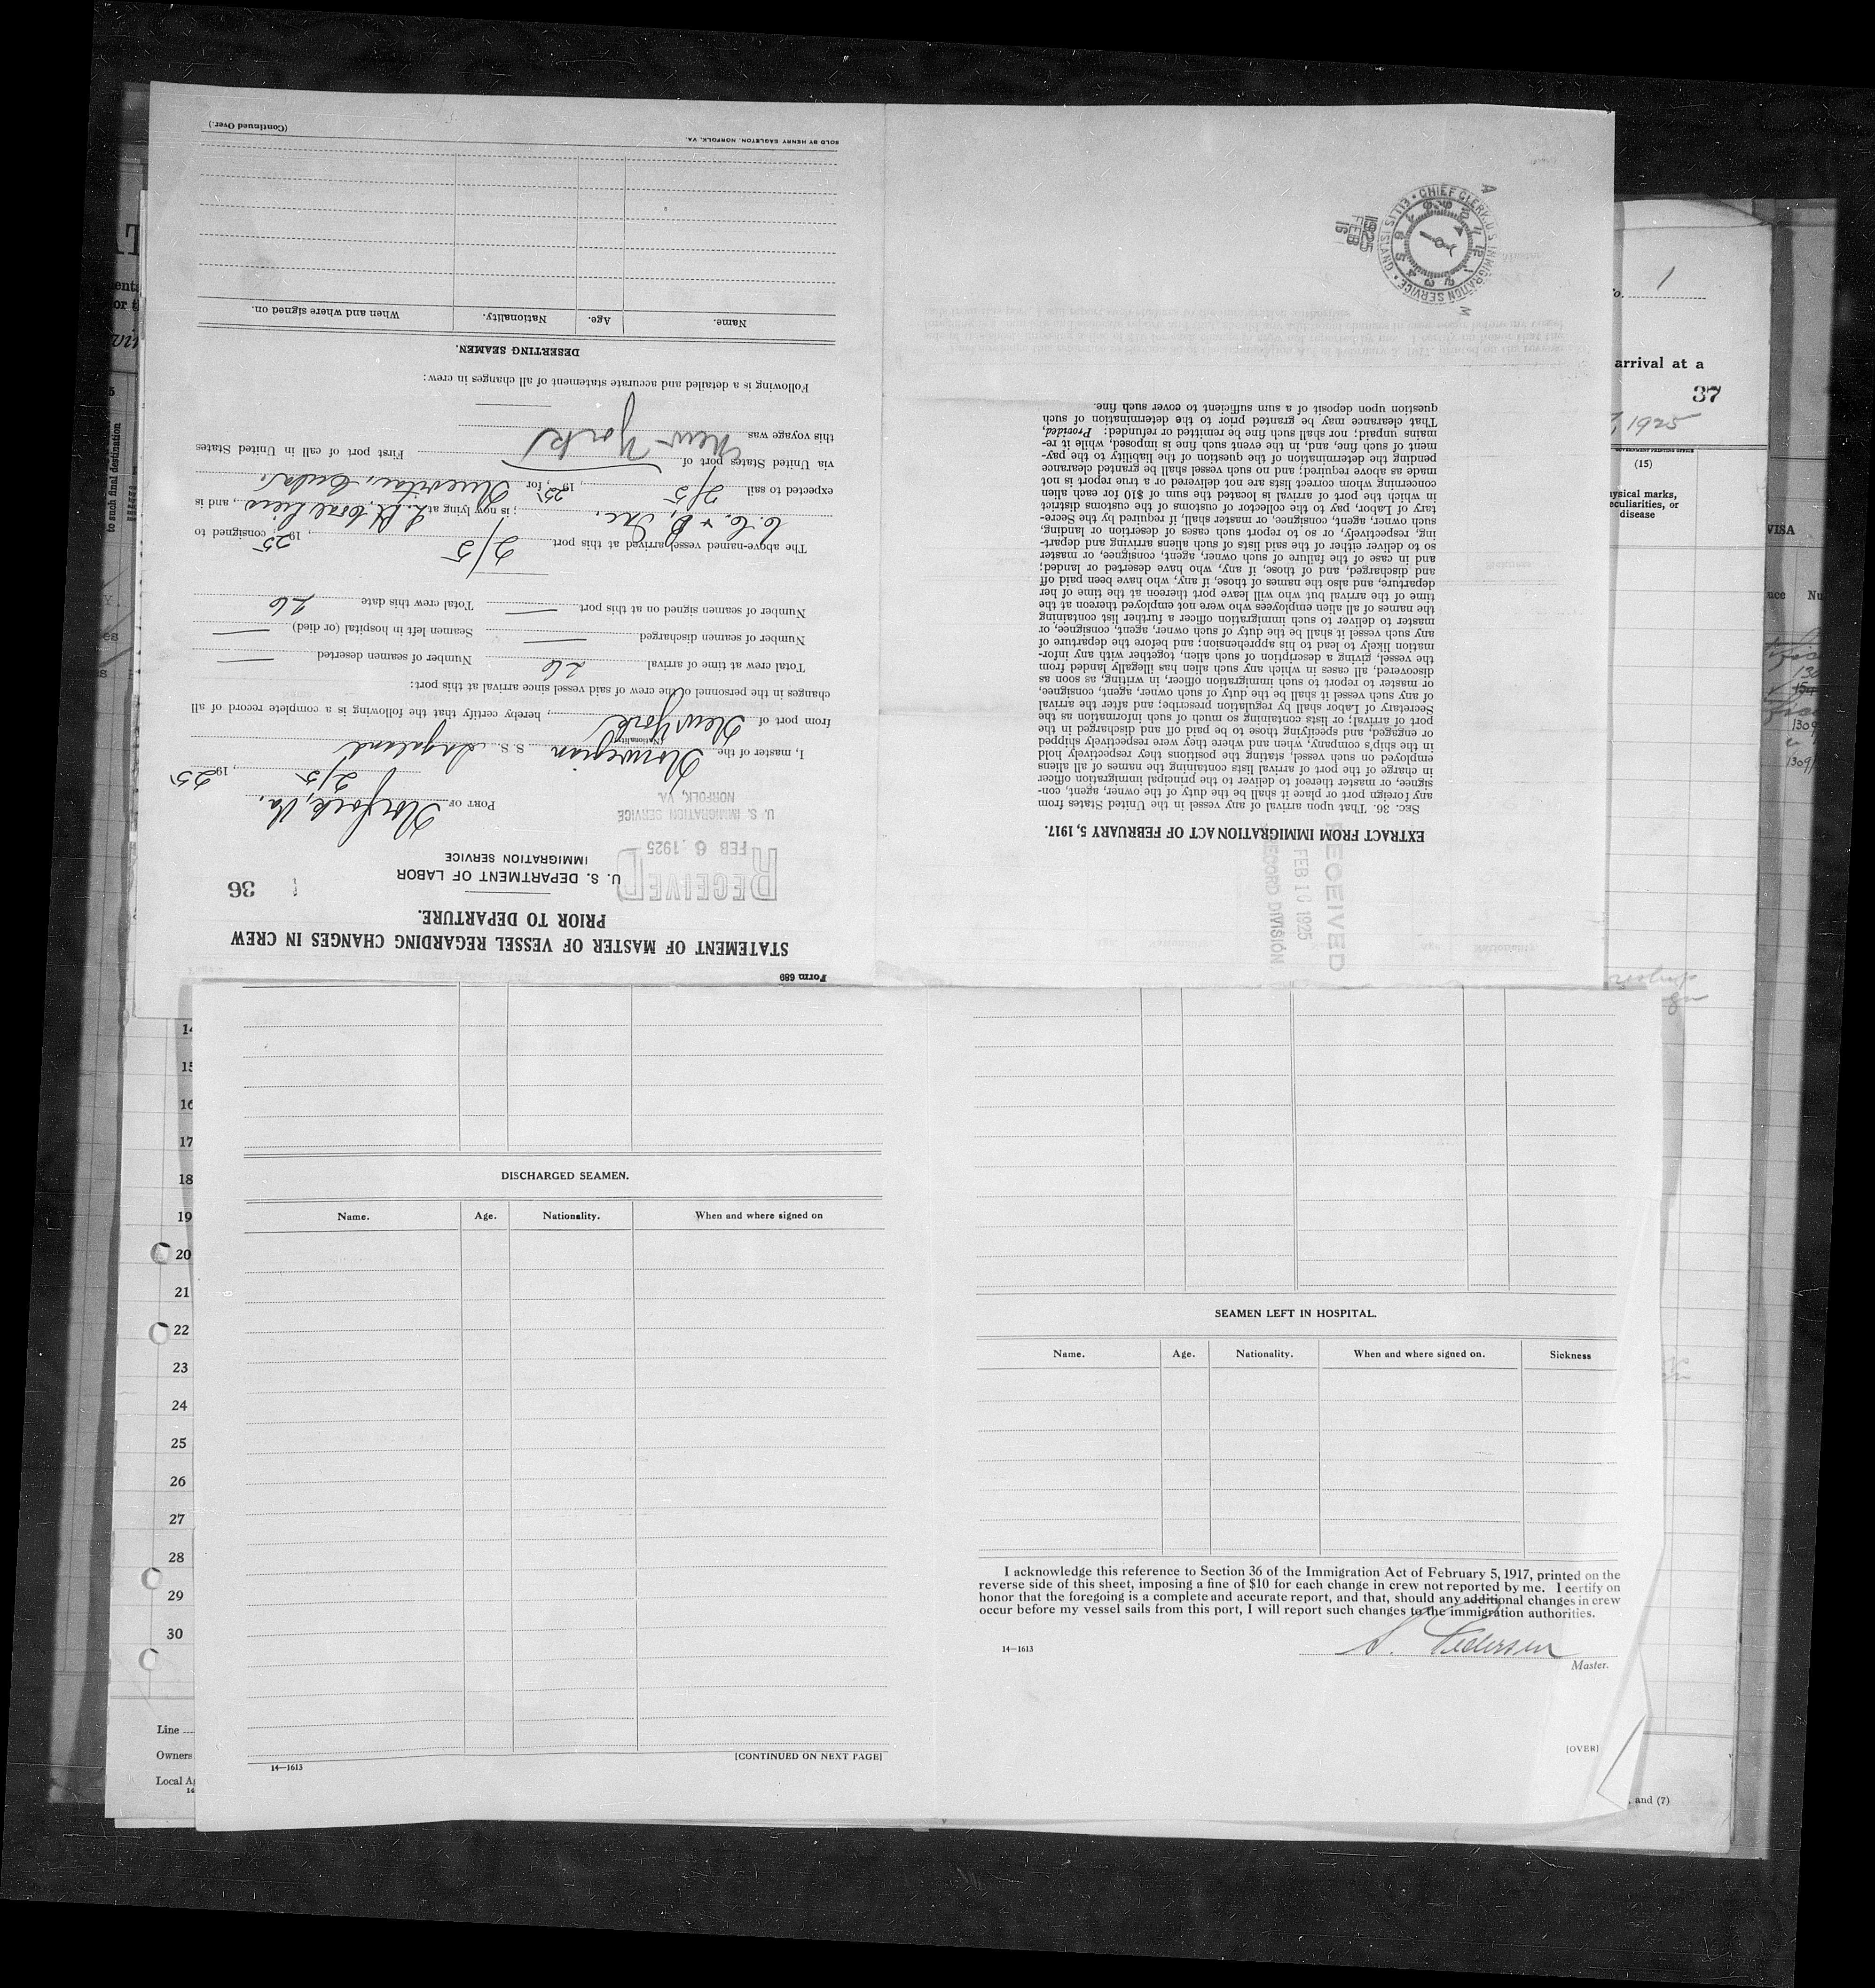 Form 689
STATEMENT OF MASTER OF VESSEL REGARDING CHANGES IN CREW
PRIOR TO DEPARTURE.
36
U. S. DEPARTMENT OF LABOR
IMMIGRATION SERVICE
RECEIVED
FEB 6, 1925
U. S. IMMIGRATION SERVICE
NORFOLK, VA.
PORT OF Norfolk, Va.
2/5, 1925
I, master of the Norwegian S. S. Ingaland
(Nationality)
from port of New York, hereby certify that the following is a complete record of all
changes in the personnel of the crew of said vessel since arrival at this port:
Total crew at time of arrival 26 Number of seamen deserted —
Number of seamen discharged — Seamen left in hospital (or died) —
Number of seamen signed on at this port — Total crew this date 26
The above-named vessel arrived at this port 2/5, 1925, consigned to
C. C. & D, Inc.; is now lying at L. Pt. Coal Piers, and is
expected to sail 2/5, 1925, for Nuevitas, Cuba
via United States port of First port of call in United States
this voyage was New York
Following is a detailed and accurate statement of all changes in crew:
DESERTING SEAMEN.
Name. Age. Nationality. When and where signed on.
SOLD BY HENRY EAGLETON, NORFOLK, VA.
(Continued Over.)
RECEIVED
FEB 16 1925
RECORD DIVISION
EXTRACT FROM IMMIGRATION ACT OF FEBRUARY 5, 1917.
SEC. 36. That upon arrival of any vessel in the United States from
any foreign port or place it shall be the duty of the owner, agent, con-
signee, or master thereof to deliver to the principal immigration officer
in charge of the port of arrival lists containing the names of all aliens
employed on such vessel, stating the positions they respectively hold
in the ship's company, when and where they were respectively shipped
or engaged, and specifying those to be paid off and discharged in the
port of arrival; or lists containing so much of such information as the
Secretary of Labor shall by regulation prescribe; and after the arrival
of any such vessel it shall be the duty of such owner, agent, consignee,
or master to report to such immigration officer, in writing, as soon as
discovered, all cases in which any such alien has illegally landed from
the vessel, giving a description of such alien, together with any infor-
mation likely to lead to his apprehension; and before the departure of
any such vessel it shall be the duty of such owner, agent, consignee, or
master to deliver to such immigration officer a further list containing
the names of all alien employees who were not employed thereon at the
time of the arrival but who will leave port thereon at the time of her
departure, and also the names of those, if any, who have been paid off
and discharged, and of those, if any, who have deserted or landed;
and in case of the failure of such owner, agent, consignee, or master
so to deliver either of the said lists of such aliens arriving and depart-
ing, respectively, or so to report such cases of desertion or landing,
such owner, agent, consignee, or master shall, if required by the Secre-
tary of Labor, pay to the collector of customs of the customs district
in which the port of arrival is located the sum of $10 for each alien
concerning whom correct lists are not delivered or a true report is not
made as above required; and no such vessel shall be granted clearance
pending the determination of the question of the liability to the pay-
ment of such fine, and, in the event such fine is imposed, while it re-
mains unpaid; nor shall such fine be remitted or refunded: Provided,
That clearance may be granted prior to the determination of such
question upon deposit of a sum sufficient to cover such fine.
CHIEF CLERK U S IMMIGRATION SERVICE • ELLIS ISLAND •
1925
FEB
16
1
arrival at a
37
, 1925
GOVERNMENT PRINTING OFFICE
(15)
disease
VISA
to such final destination
14
15
16
17
18
19
20
21
22
23
24
25
26
27
28
29
30
Line
Owners
DISCHARGED SEAMEN.
Name. Age. Nationality. When and where signed on
14—1613
[CONTINUED ON NEXT PAGE]
SEAMEN LEFT IN HOSPITAL.
Name. Age. Nationality. When and where signed on. Sickness
I acknowledge this reference to Section 36 of the Immigration Act of February 5, 1917, printed on the
reverse side of this sheet, imposing a fine of $10 for each change in crew not reported by me. I certify on
honor that the foregoing is a complete and accurate report, and that, should any additional changes in crew
occur before my vessel sails from this port, I will report such changes to the immigration authorities.
14—1613
S. Pedersen
Master.
[OVER]
and (7)